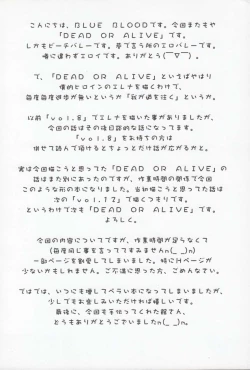 こんにちは、BLUE BLOODです。今回またもや
「DEAD OR ALIVE」です。
しかもビーチバレーです。夢で言う所のエロバレーです。
噂に違わずエロイです。ありがとう(￣▽￣)。
で、「DEAD OR ALIVE」といえばやはり
個的ヒロインのエレナを描くわけで、
毎度毎度進歩が無いというか「我が道を往く」というか。
以前「vol.8」でエレナ描いた事がありましが、
今回の話はその後日談的な話になってます。
「vol.8」をお持ちの方は
併せて読んで頂けるとちょっとだけ話が広がるかと。
実は今回描こうと思ってた「DEAD OR ALIVE」の
話はまた別にあったのですが、作業時間の関係で今回
このような形の本になりました。当初描こうと思ってた話は
次の「vol.12」で描くつもりです。
というわけで次も「DEAD OR ALIVE」です。
よろしく。
今回の内容についてですが、作業時間が足らなくて
(毎度同じ事を言っててすみませんn(_ _)n)
一部ページを割愛してしまいました。特にHページが
少ないかもしれません。ご不満に思った方、ごめんなさい。
ではでは、いつにも増してペラい本になってしまいましたが、
少しでもお楽しみいただければ嬉しいです。
最後に、今回も手伝ってくれた館さん、
どうもありがとうございましたn(_ _)n。